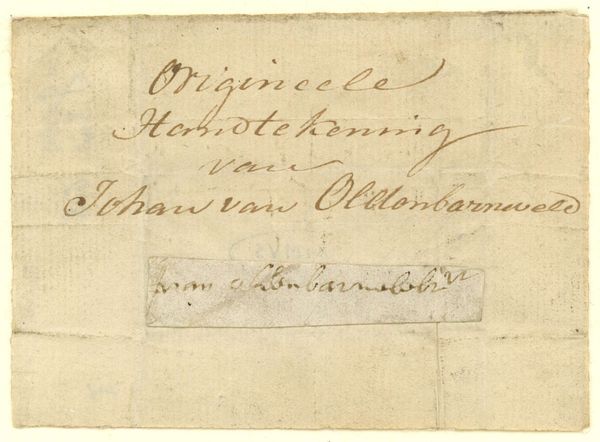 Origineele
Handtekening
van
Johan van Oldenbarneveld
van oldenbarnevelt